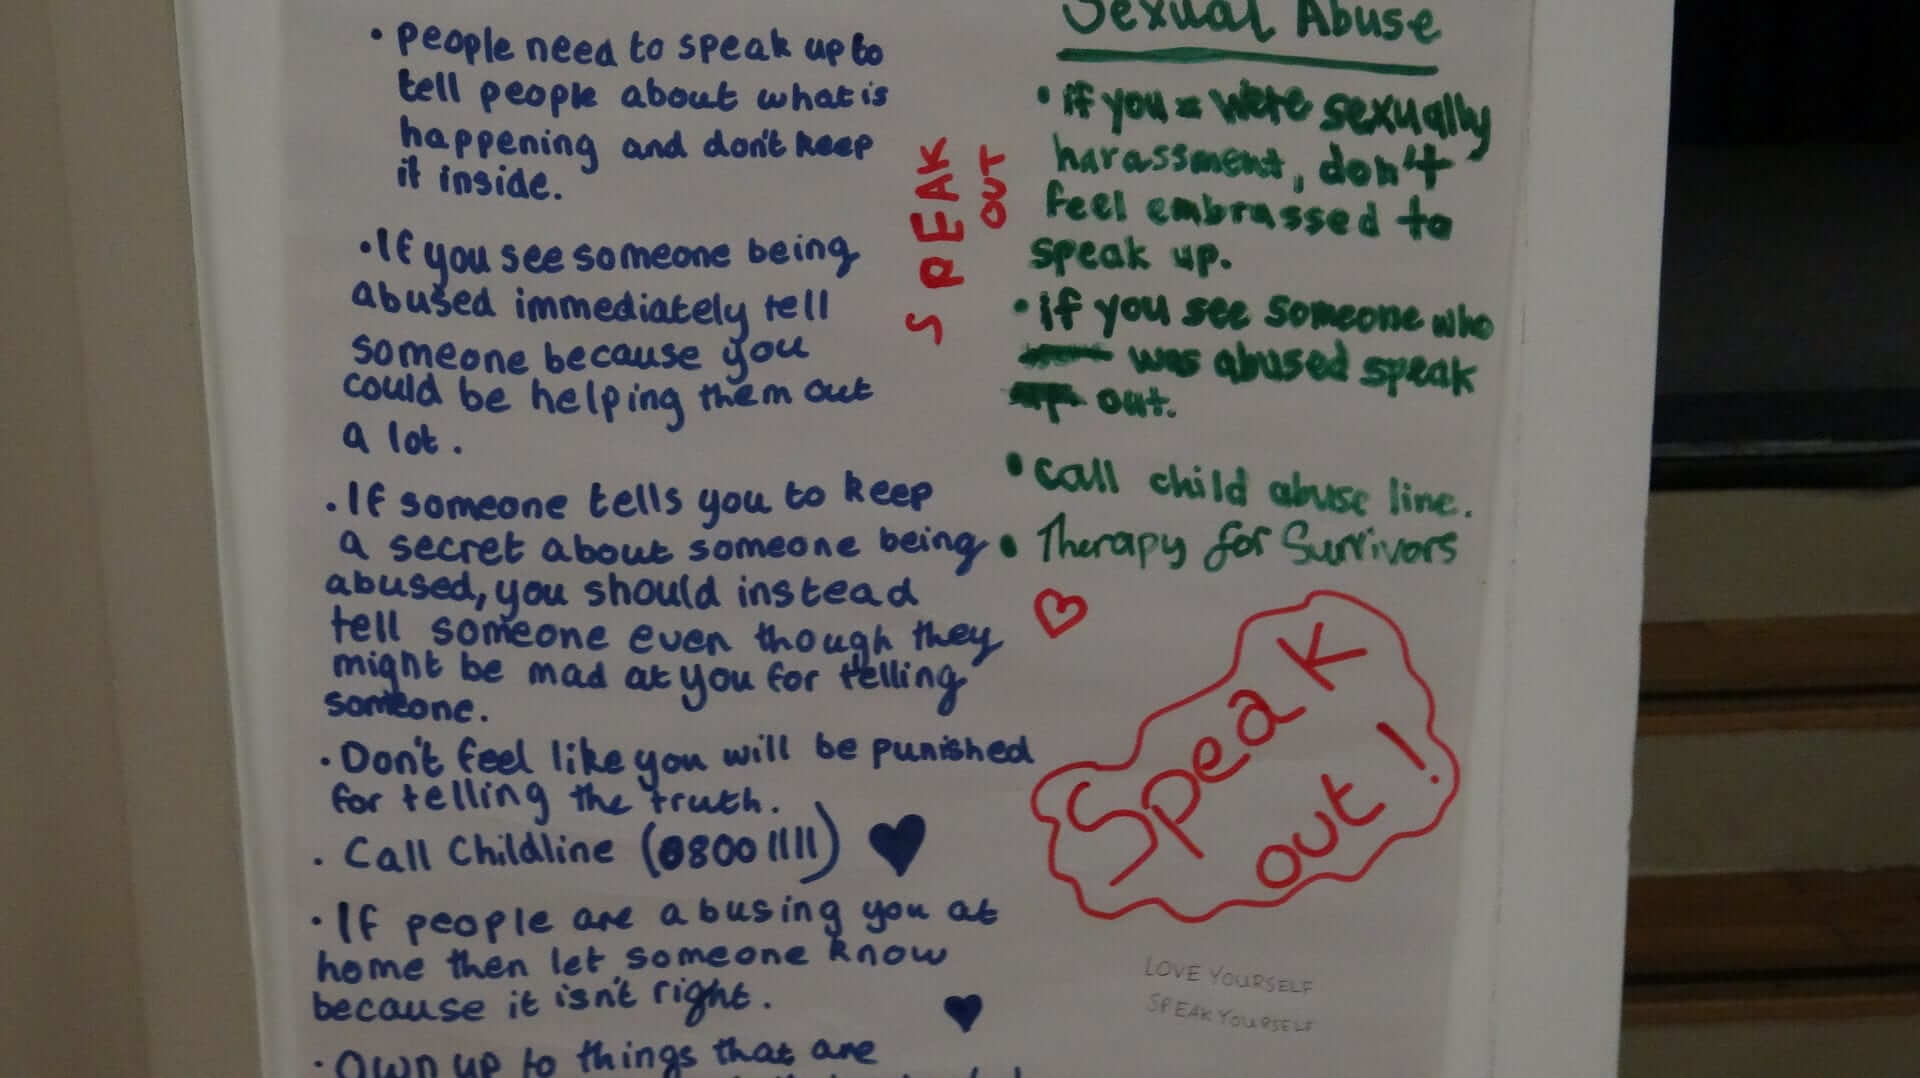 • people need to speak up to
tell people about what is
happening and don't keep
it inside.
• If you see someone being
abused immediately tell
someone because you
could be helping them out
a lot.
• If someone tells you to keep
a secret about someone being
abused, you should instead
tell someone even though they
might be mad at you for telling
someone.
• Don't feel like you will be punished
for telling the truth.
• Call Childline (0800 1111)
• If people are abusing you at
home then let someone know
because it isn't right.
• Own up to things that are
SPEAK
OUT
Sexual Abuse
• if you were sexually
harassment, don't
feel embrassed to
speak up.
• if you see someone who
was abused speak
out.
• Call child abuse line.
• Therapy for Survivors
Speak
out!
LOVE YOURSELF
SPEAK YOURSELF